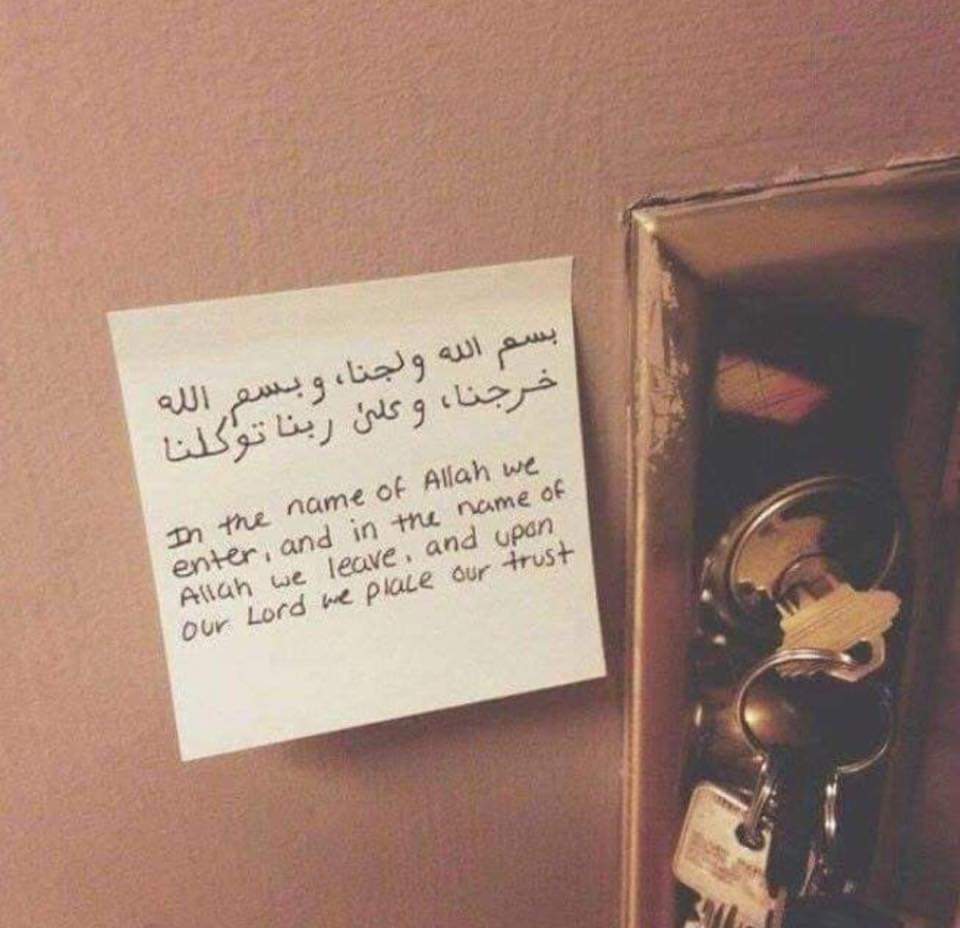 بسم الله ولجنا، وبسم الله
خرجنا، وعلئ ربنا توكلنا
In the name of Allah we
enter, and in the name of
Allah we leave, and upon
our Lord we place our trust